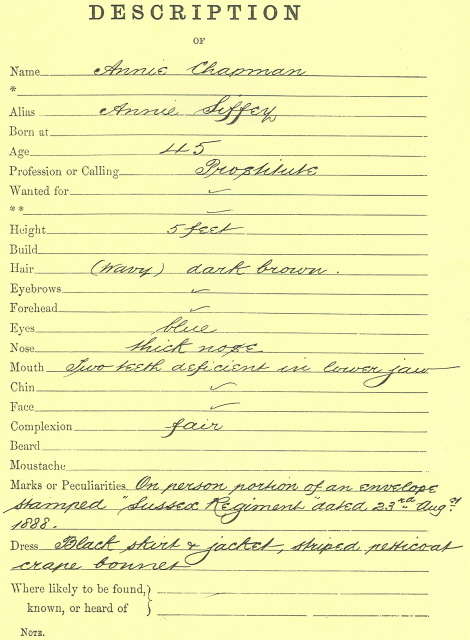 DESCRIPTION
OF
Name Annie Chapman
*
Alias Annie Siffey
Born at
Age 45
Profession or Calling Prostitute
Wanted for ✓
** ✓
Height 5 feet
Build
Hair (Wavy) dark brown.
Eyebrows ✓
Forehead ✓
Eyes blue
Nose thick nose
Mouth Two teeth deficient in lower jaw
Chin ✓
Face ✓
Complexion fair
Beard
Moustache
Marks or Peculiarities On person portion of an envelope
stamped "Sussex Regiment" dated 23rd Augst
1888.
Dress Black skirt & jacket, striped petticoat
crape bonnet
Where likely to be found,
known, or heard of
NOTE.